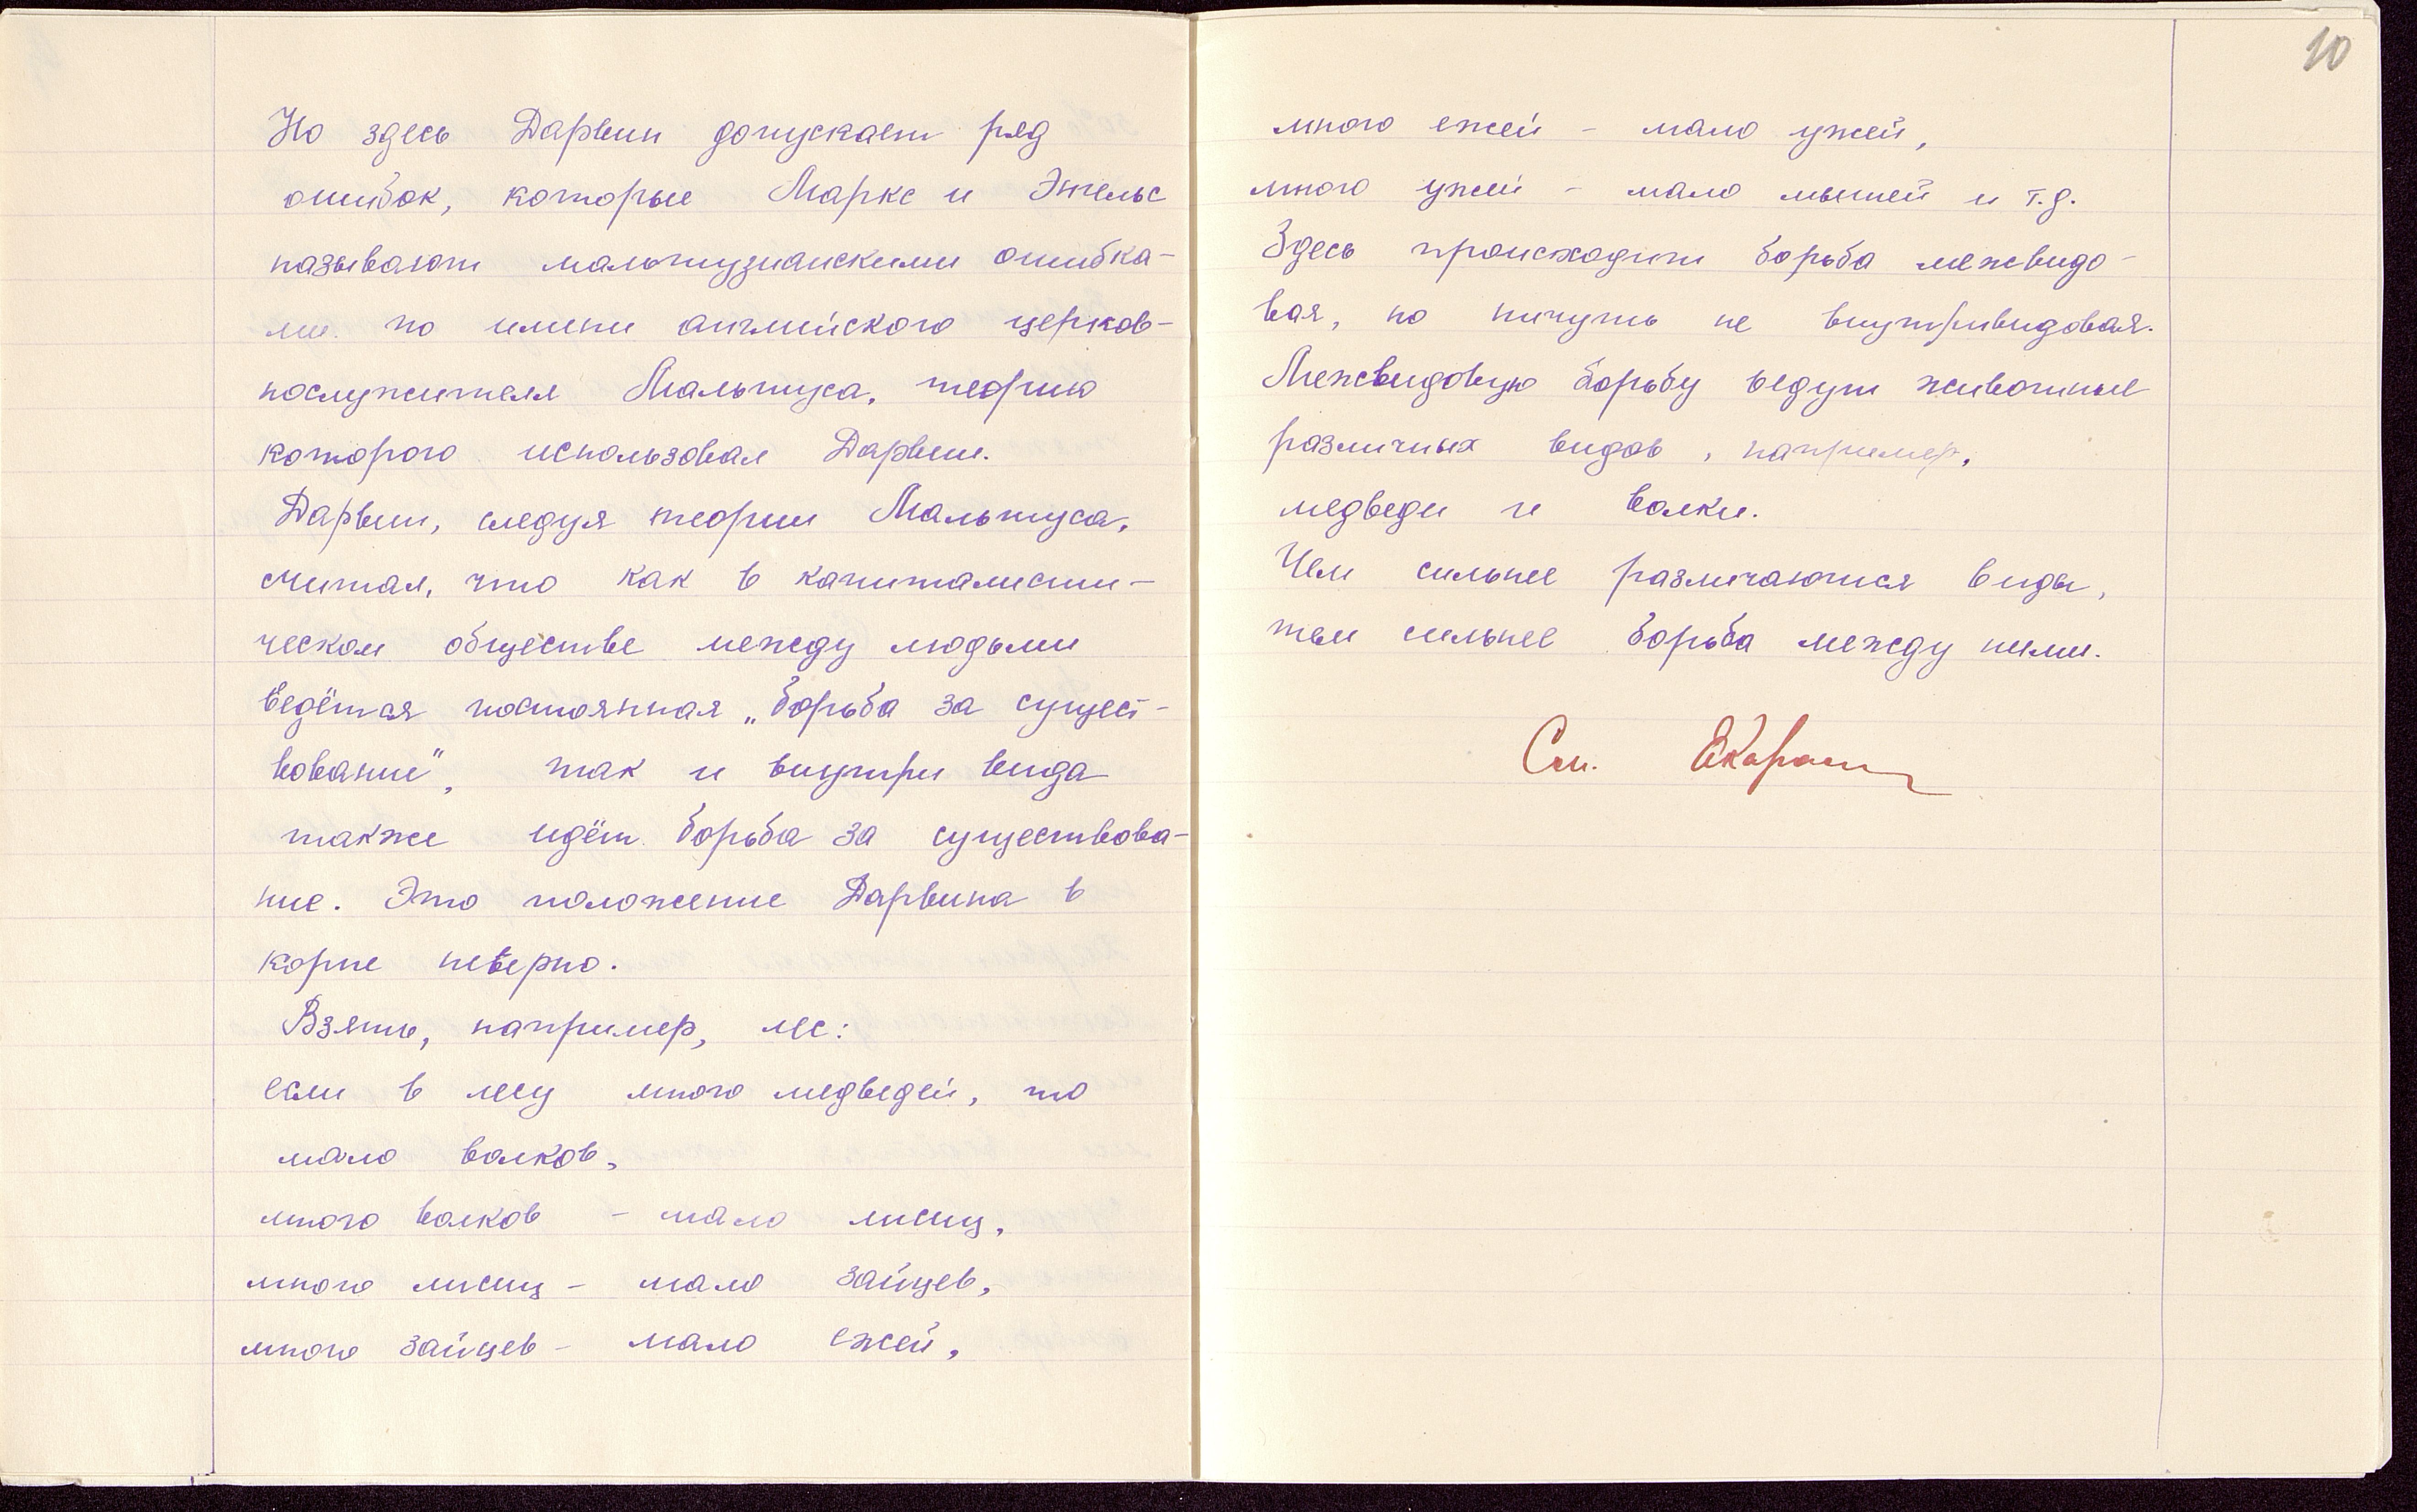 Но здесь Дарвин допускает ряд
ошибок, которые Маркс и Энгельс
называют мальтузианскими ошибка-
ми по имени английского церков-
нослужителя Мальтуса, теорию
которого использовал Дарвин.
Дарвин, следуя теории Мальтуса,
считал, что как в капиталисти-
ческом обществе между людьми
ведётся постоянная „борьба за сущест-
вование", так и внутри вида
также идёт борьба за существова-
ние. Это положение Дарвина в
корне неверно.
Взять, например, лес:
если в лесу много медведей, то
мало волков,
много волков - мало лисиц,
много лисиц - мало зайцев,
много зайцев - мало ежей,
10
много ежей - мало ужей,
много ужей - мало мышей и т.д.
Здесь происходит борьба межвидо-
вая, но ничуть не внутривидовая.
Межвидовую борьбу ведут животные
различных видов, например,
медведи и волки.
Чем сильнее различаются виды,
тем сильнее борьба между ними.
См.